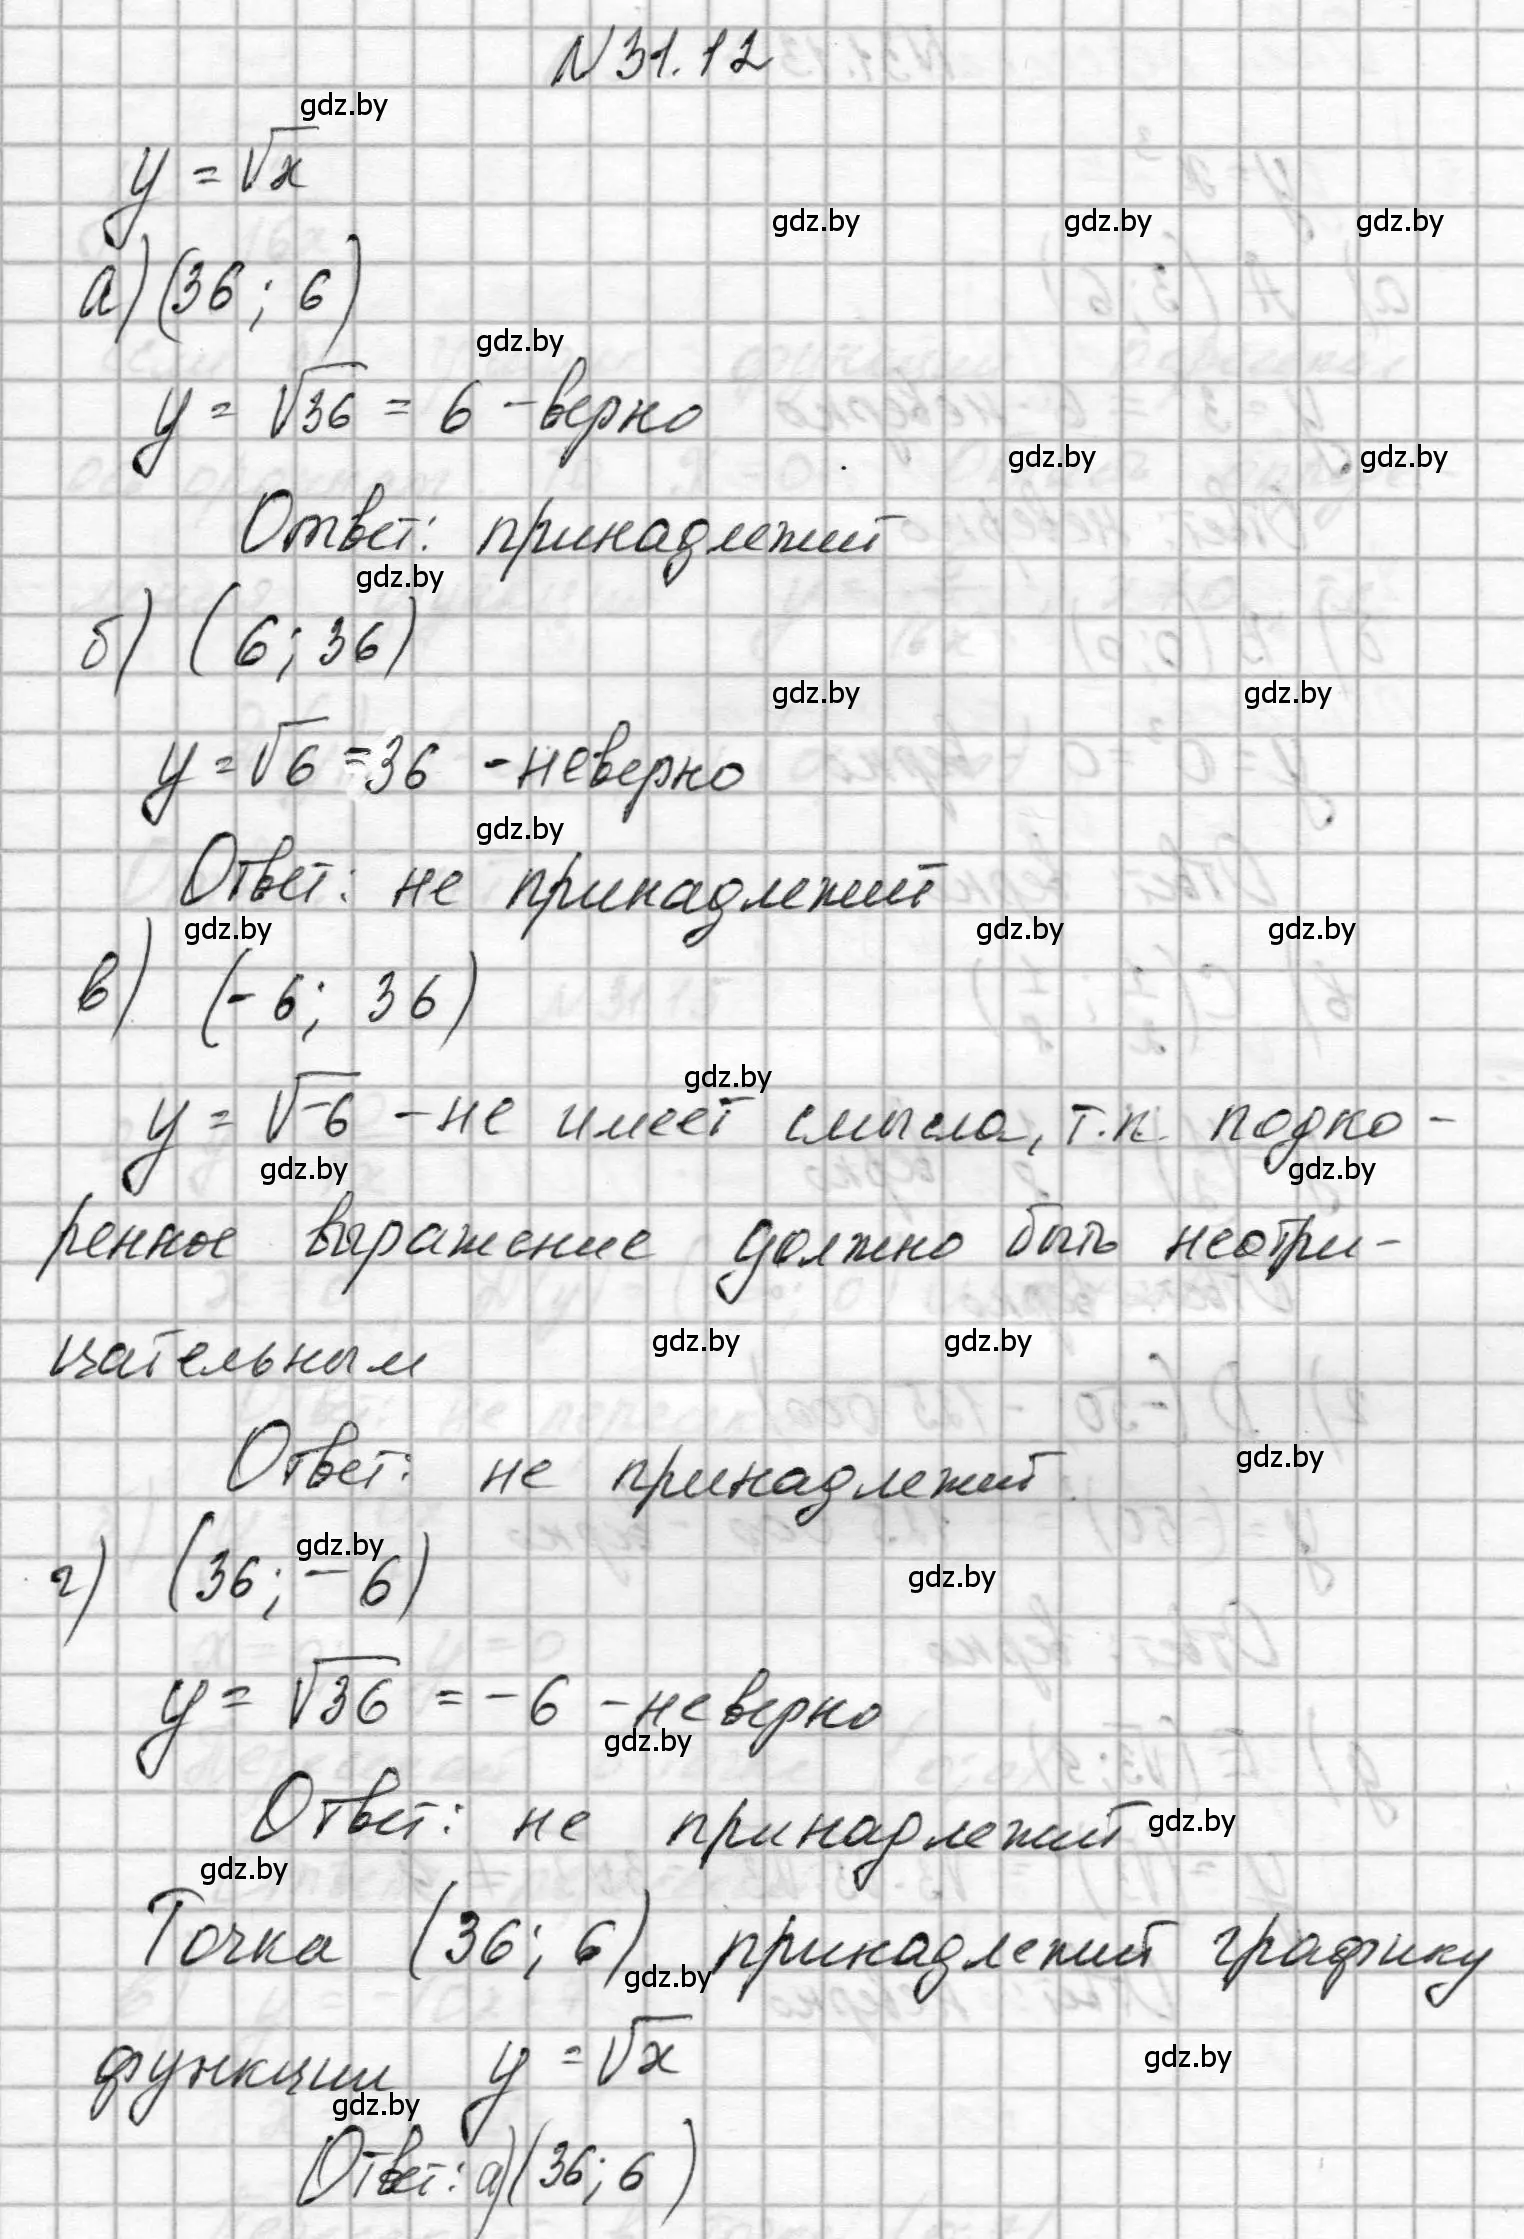 N 31.12
gdz.by
y = √x
gdz.by gdz.by gdz.by
а) (36; 6)
gdz.by
y = √36 = 6 - верно
gdz.by gdz.by
Ответ: принадлежит
gdz.by
б) (6; 36)
gdz.by gdz.by
y = √6 = 36 - неверно
gdz.by
Ответ: не принадлежит
gdz.by gdz.by gdz.by
в) (-6; 36)
gdz.by
y = √-6 - не имеет смысла, т.к. подко-
gdz.by gdz.by
ренное выражение должно быть неотри-
gdz.by gdz.by
цательным
gdz.by
Ответ: не принадлежит
gdz.by
г) (36; -6)
gdz.by
y = √36 = -6 - неверно
gdz.by
Ответ: не принадлежит
gdz.by
gdz.by
Точка (36; 6) принадлежит графику
gdz.by
функции y = √x
gdz.by
gdz.by
Ответ: а) (36; 6)